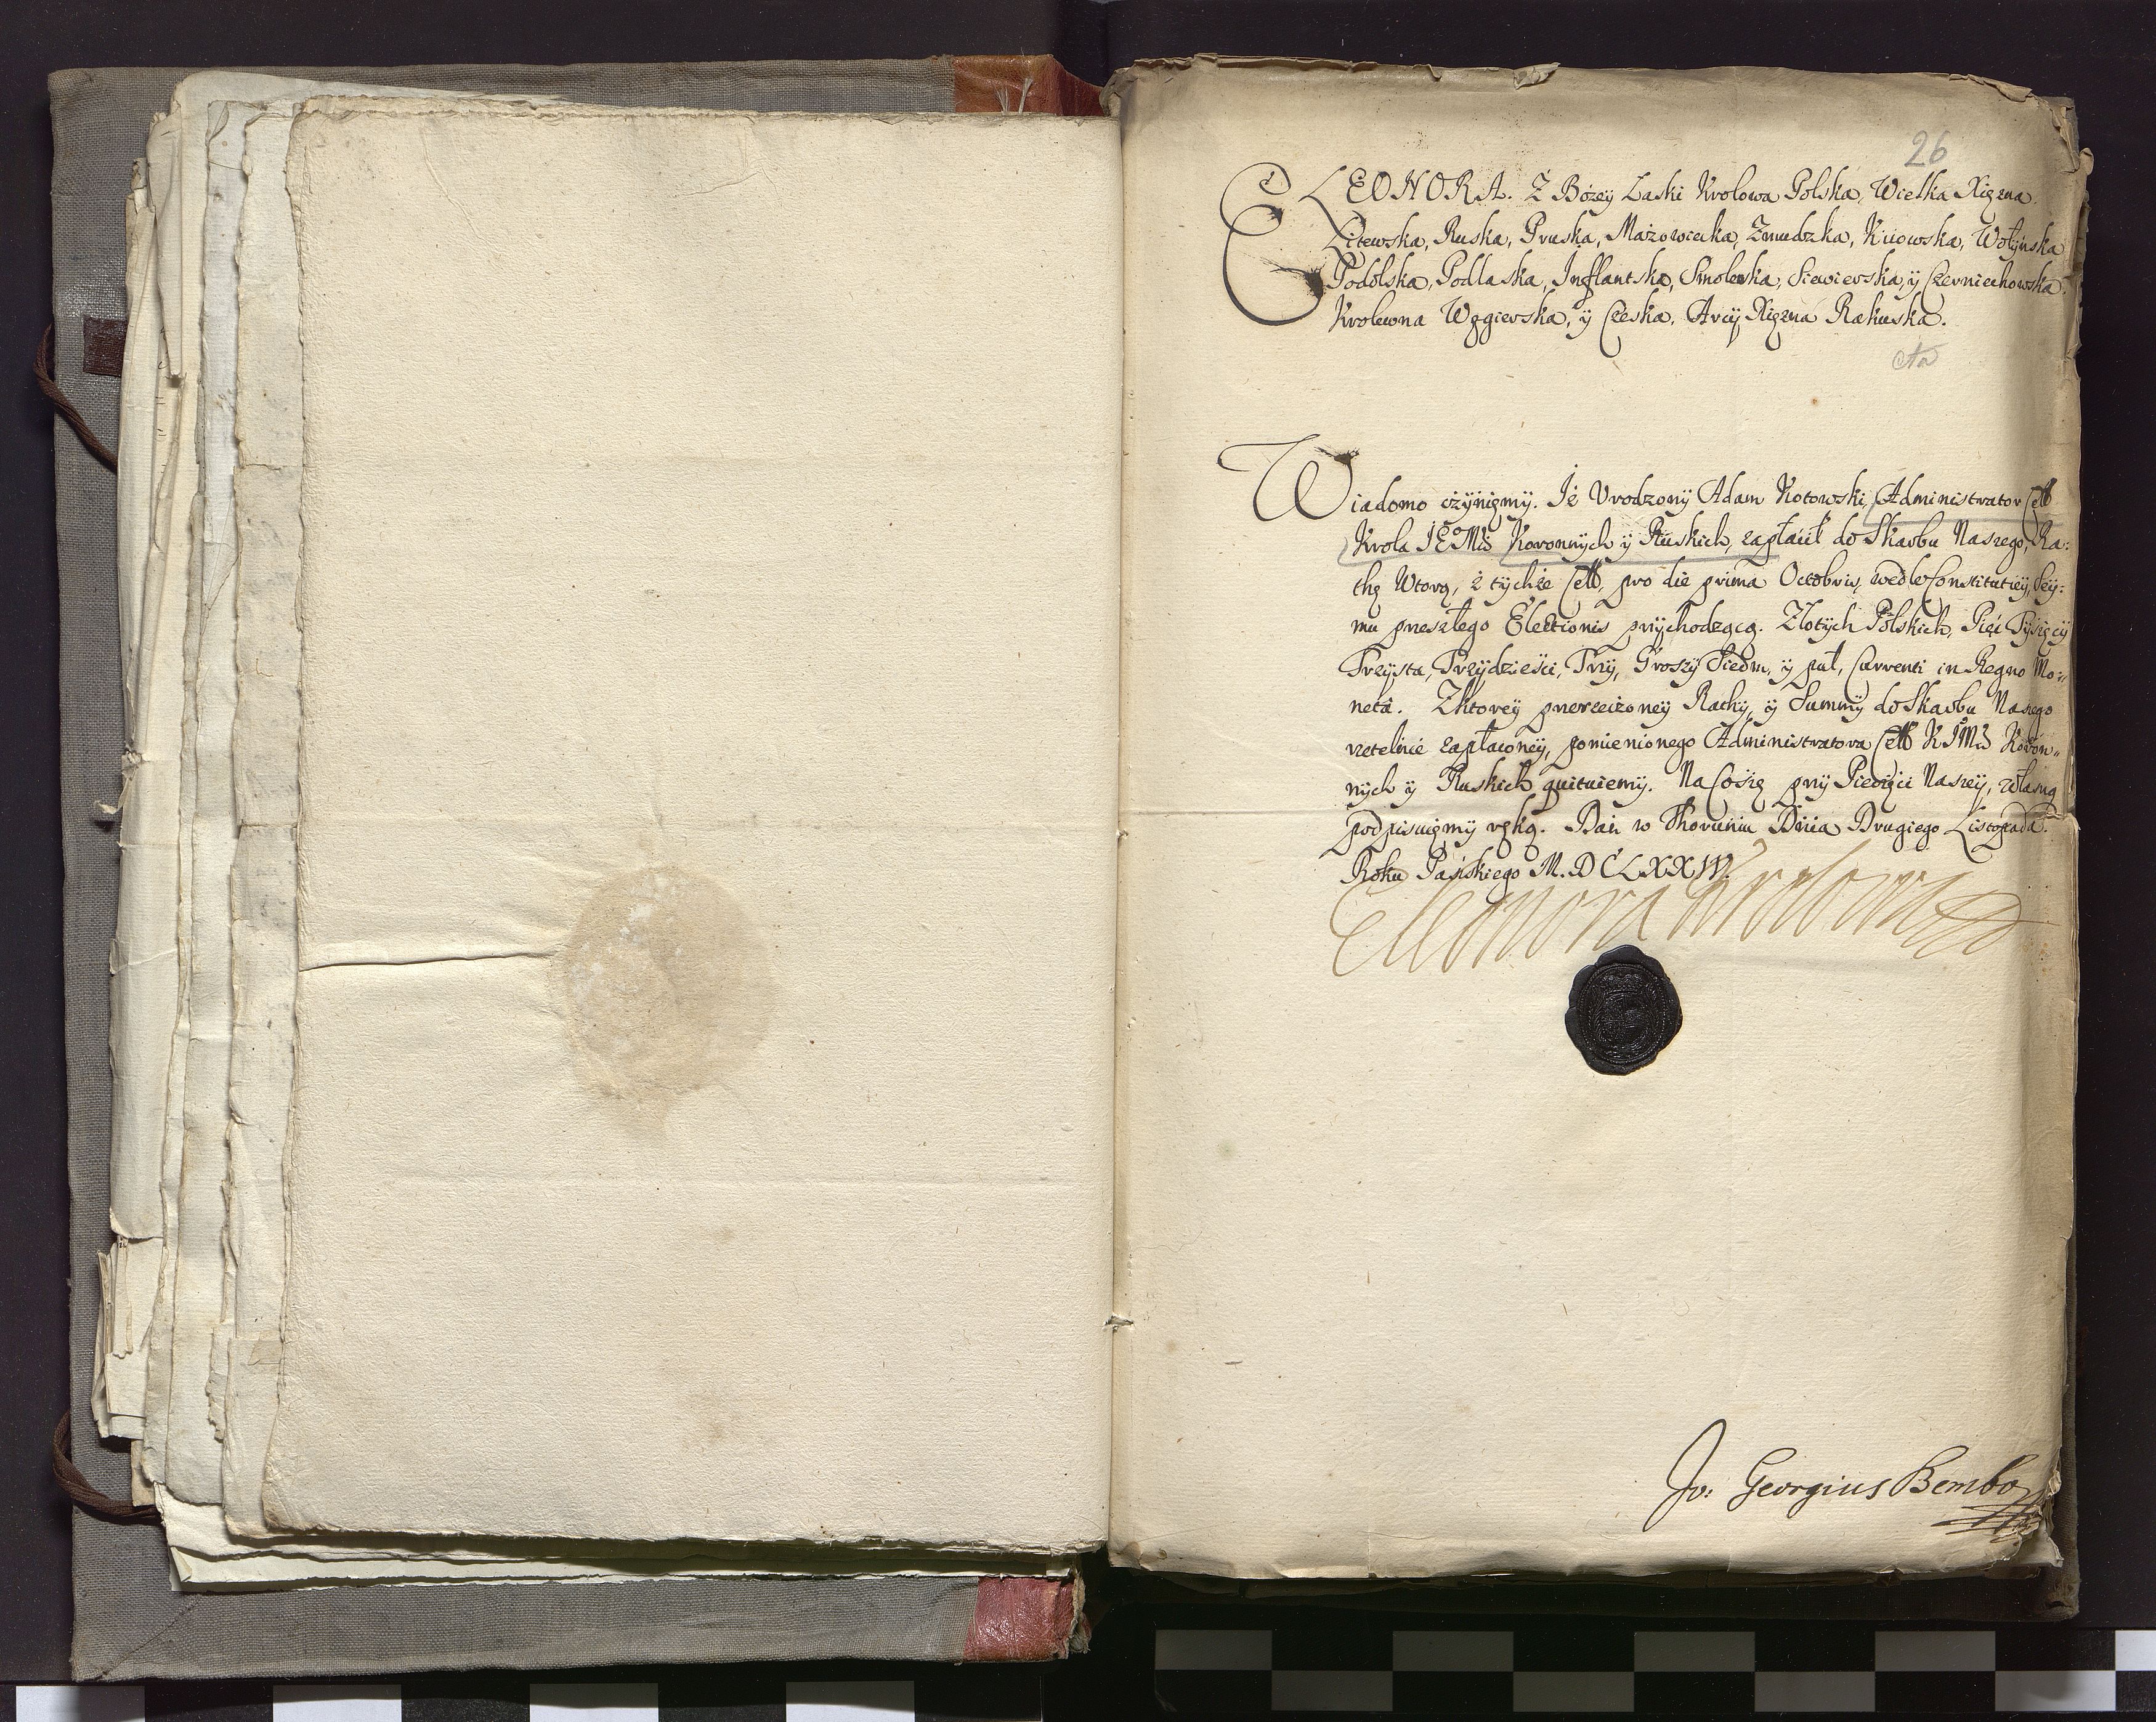 26
ELEONORA. Z Bożey Łaski Krolowa Polska, Wielka Xięzna
Litewska, Ruska, Pruska, Mazowiecka, Zmudzka, Kiiowska, Wołÿnska
Podolska, Podlaska, Inflantska, Smolenska, Siewierska, ÿ Czerniechowska
Krolewna Węgierska, ÿ Czeska, Arcÿ Xięzna Rakuska.
Wiadomo czÿnięmÿ. Iż Vrodzonÿ Adam Kotowski, Administrator Cell
Krola IEoMsci Koronnÿch ÿ Ruskich, zapłacił do Skarbu Naszego, Ra:
thę Wtorą, z tÿchże Cell, pro die prima Octobris, wedle Constitutieÿ, Seÿ:
mu przeszłego Electionis przÿchodzącą. Złotÿch Polskich, Pięć Tÿsięcÿ
Trzÿsta, Trzÿdzieści, Trzÿ, Groszÿ Siedm, ÿ puł, Currenti in Regno Mo:
netâ. Zktoreÿ przerzeczoneÿ Rathÿ, ÿ Summÿ do Skarbu Naszego
rzetelnie zapłaconeÿ, pomienionego Administratora Cell KIMsci Koron:
nÿch ÿ Ruskich quituiemÿ. Na Cosię przÿ Pieczęci Naszeÿ, własną
podpisuięmÿ ręką. Dan w Thoruniu Dnia Drugiego Listopada.
Roku Pańskiego M.DCLXXIV.
Eleonora Krolowa
Jo: Georgius Bembo